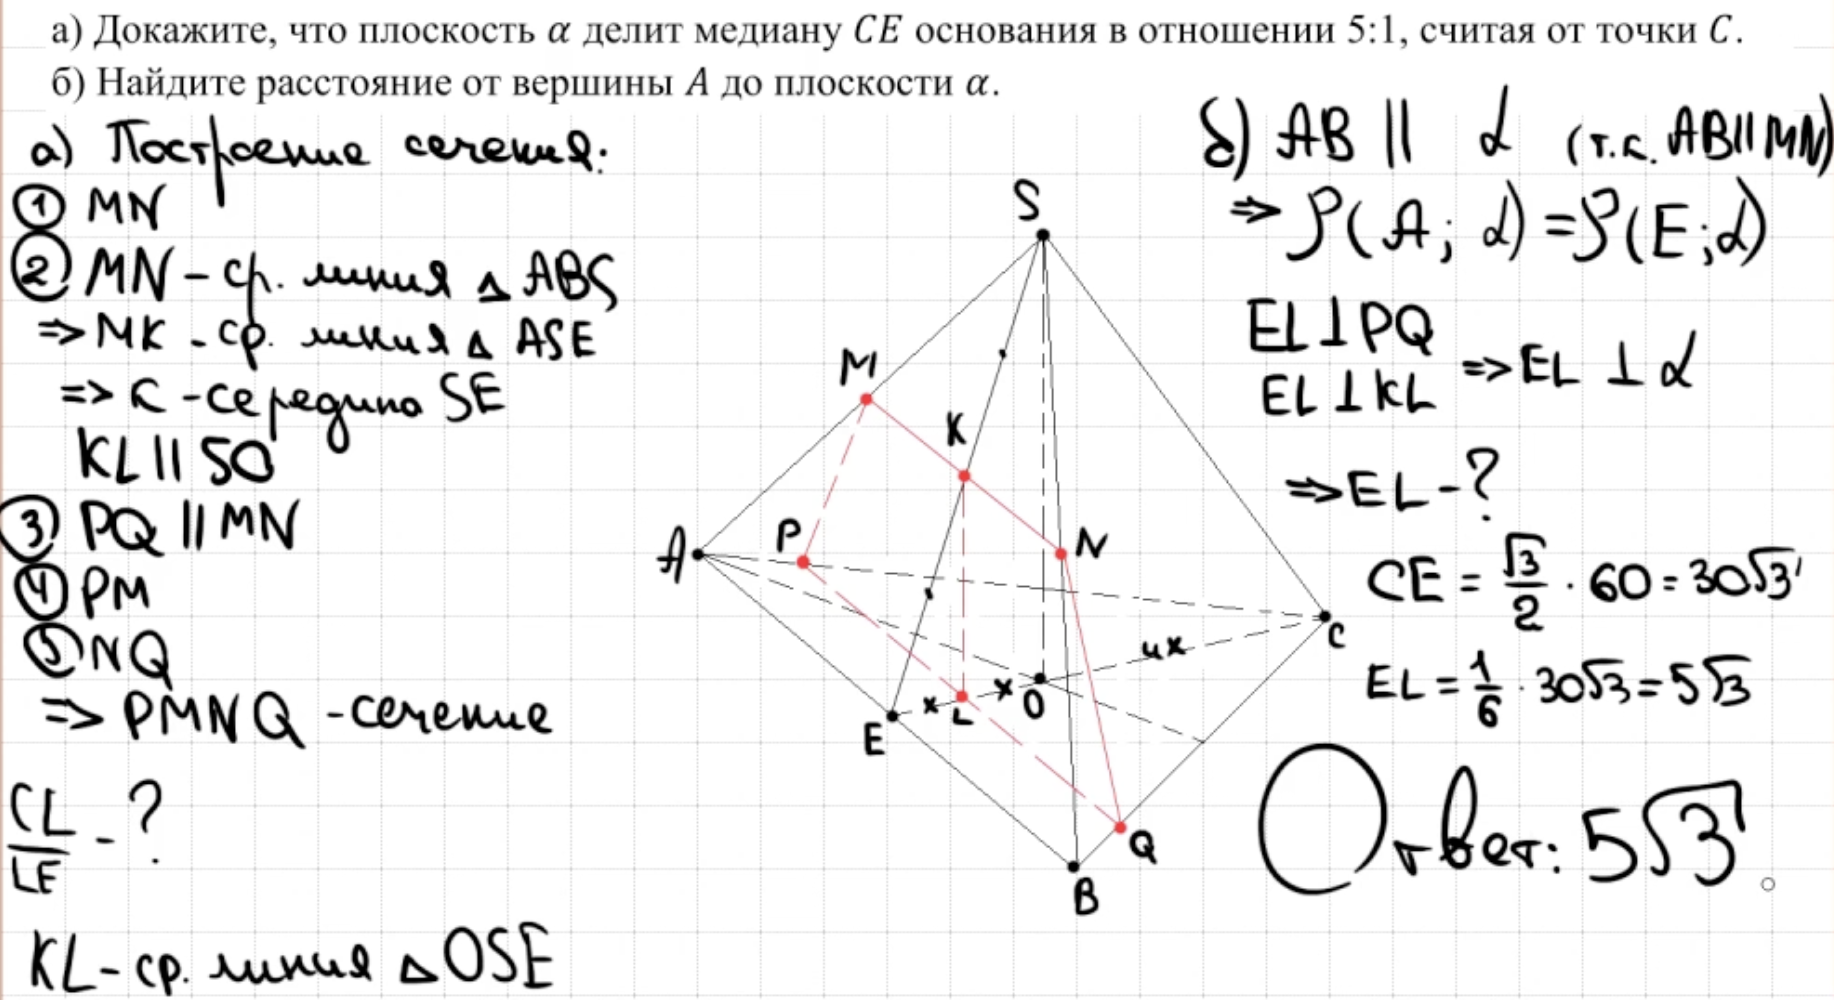 а) Докажите, что плоскость α делит медиану CE основания в отношении 5:1, считая от точки C.
б) Найдите расстояние от вершины A до плоскости α.
а) Построение сечения:
① MN
② MN - ср. линия △ ABS
=> MK - ср. линия △ ASE
=> K - середина SE
KL || SO
③ PQ || MN
④ PM
⑤ NQ
=> PMNQ - сечение
CL/LE - ?
KL - ср. линия △ OSE
S
M
K
A
P
N
C
4x
x
O
x
L
E
Q
B
б) AB || α (т.к. AB || MN)
=> ρ(A; α) = ρ(E; α)
EL ⊥ PQ
EL ⊥ KL => EL ⊥ α
=> EL - ?
CE = √3/2 · 60 = 30√3
EL = 1/6 · 30√3 = 5√3
Ответ: 5√3